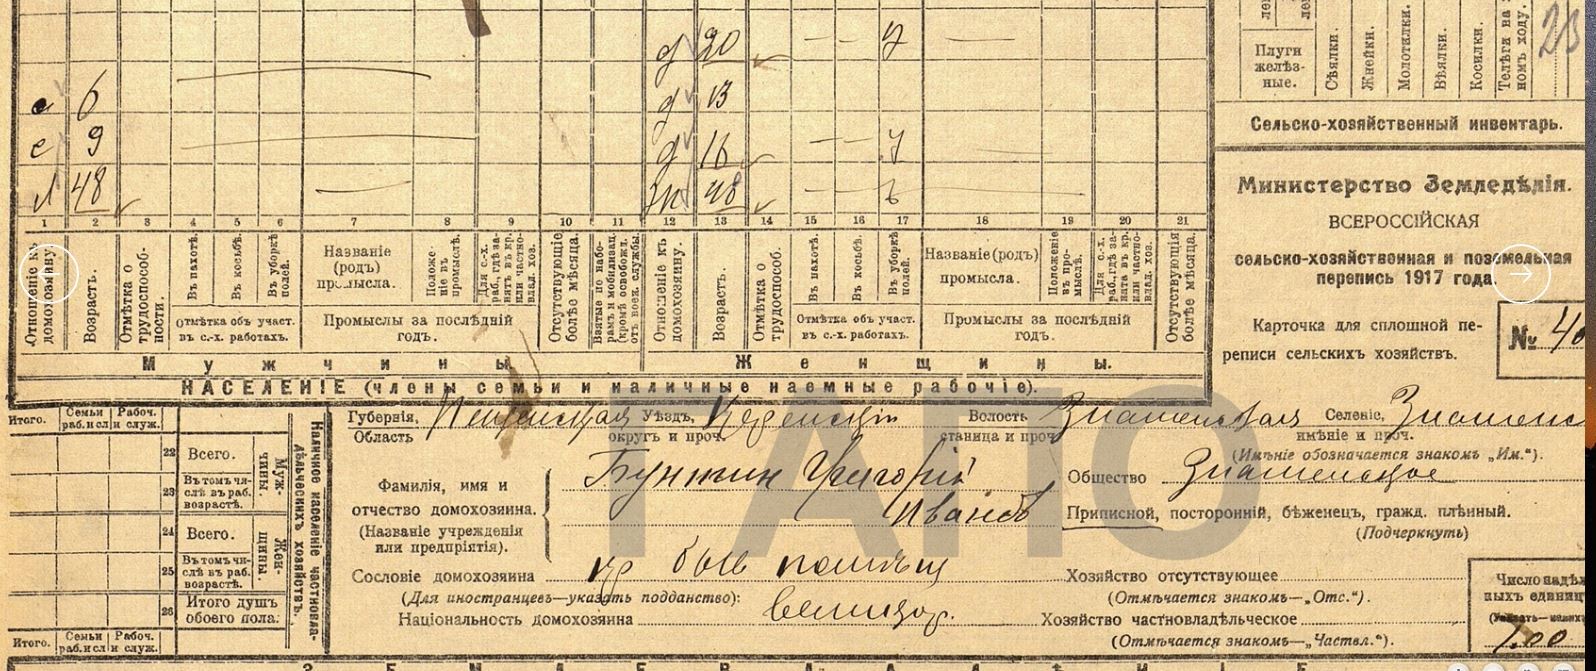 д 20 — — 7 —
с 6 д 13
с 9 д 16 — — 7
48 — 48 — —
1 2 3 4 5 6 7 8 9 10 11 12 13 14 15 16 17 18 19 20 21
Отношеніе къ домохозяину.
Возрастъ.
Отмѣтка о трудоспособ-
ности.
Въ пахотѣ.
Въ косьбѣ.
Въ уборкѣ полей.
Отмѣтка объ участ.
въ с.-х. работахъ.
Названіе
(родъ)
промысла.
Положе-
ніе въ
промыслѣ.
Для с.-х.
раб., гдѣ за-
нятъ въ кр.
или частно-
влад. хоз.
Промыслы за послѣдній
годъ.
Отсутствующіе
болѣе мѣсяца.
Взятые по набо-
рамъ и мобилизац.
(кромѣ освобожд.
отъ воен. службы).
Отношеніе къ
домохозяину.
Возрастъ.
Отмѣтка о
трудоспособ-
ности.
Въ пахотѣ.
Въ косьбѣ.
Въ уборкѣ
полей.
Отмѣтка объ участ.
въ с.-х. работахъ.
Названіе (родъ)
промысла.
Положеніе
въ про-
мыслѣ.
Для с.-х.
раб., гдѣ за-
ната въ кр.
или частно-
влад. хоз.
Промыслы за послѣдній
годъ.
Отсутствующія
болѣе мѣсяца.
Мужчины Женщины.
НАСЕЛЕНІЕ (члены семьи и наличные наемные рабочіе).
Плуги
желѣз-
ные.
Сѣялки.
Жнейки.
Молотилки.
Вѣялки.
Косилки.
Телѣги на
номъ ходу.
23
Сельско-хозяйственный инвентарь.
Министерство Земледѣлія.
ВСЕРОССІЙСКАЯ
сельско-хозяйственная и поземельная
перепись 1917 года.
Карточка для сплошной пе-
реписи сельскихъ хозяйствъ.
№ 40
Итого.
Семьи Рабоч.
раб. исл и служ.
22 Всего.
23 Въ томъ чи-
слѣ въ раб.
возрастѣ.
Муж-
чины.
24 Всего.
25 Въ томъ чи-
слѣ въ раб.
возрастѣ.
Жен-
щины.
26 Итого душъ
обоего пола.
Итого.
Семьи Рабоч.
раб. исл и служ.
Наличное населеніе частновла-
дѣльческихъ хозяйствъ.
Губернія, Пензенская Уѣздъ, Керенскій Волость Знаменская Селеніе, Знаменс
Область округъ и проч. станица и проч. имѣніе и проч.
(Имѣніе обозначается знакомъ „Им.“).
Фамилія, имя и
отчество домохозяина.
(Названіе учрежденія
или предпріятія).
Бунтин Григорій
Иванов
Общество Знаменское
Приписной, посторонній, бѣженец, гражд. плѣнный.
(Подчеркнуть)
Сословіе домохозяина кр быв помѣщ
(Для иностранцевъ—указать подданство):
Національность домохозяина великор.
Хозяйство отсутствующее
(Отмѣчается знакомъ—„Отс.“).
Хозяйство частновладѣльческое
(Отмѣчается знакомъ—„Частвл.“).
Число надѣл
ныхъ единиц
7.00
ГАПО